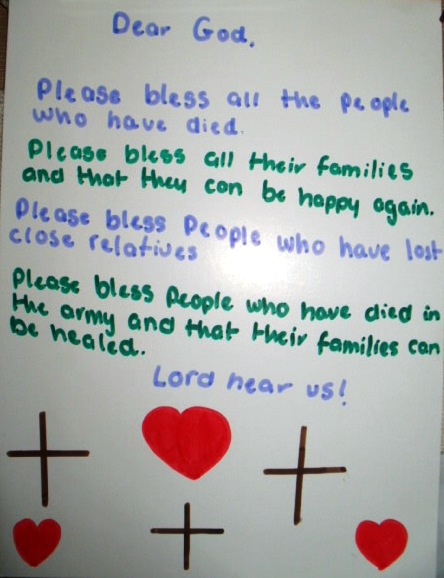 Dear God,
Please bless all the people
who have died.
Please bless all their families
and that they can be happy again.
Please bless People who have lost
close relatives
Please bless People who have died in
the army and that their families can
be healed.
Lord hear us!